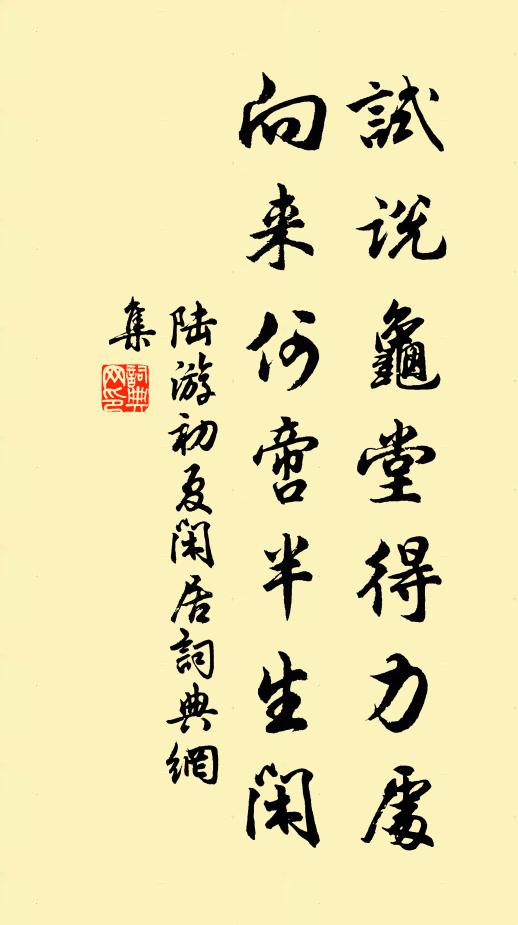 試説龜堂得力處
向来何啻半生閑
陸游初夏閑居詞典網
集
詞典
网印